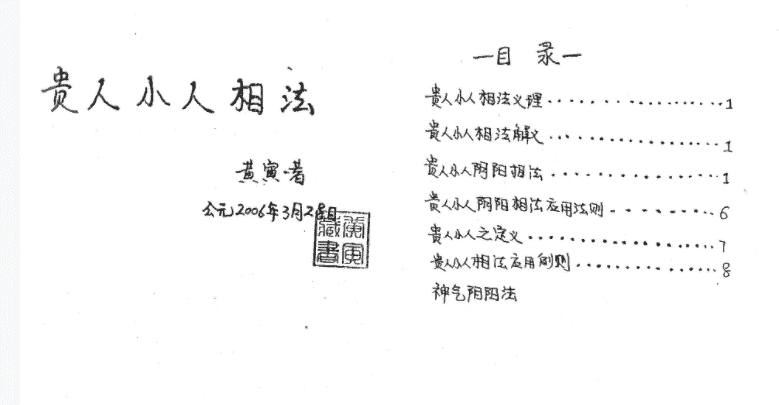 贵人小人相法
黄寅·著
公元2006年3月28日
黄寅藏书
—目 录—
贵人小人相法义理..................1
贵人小人相法解义..................1
贵人小人阴阳相法..................1
贵人小人阴阳相法应用法则..........6
贵人小人之定义....................7
贵人小人相法应用例则..............8
神气阴阳法